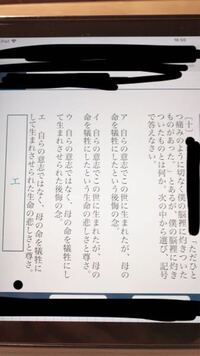 iPad
16:50
〔十〕 「ただひと
つ痛みのように切なく僕の脳裡に灼きついた
ものがあった。とあるが、僕の脳裡に灼き
ついたものとは何か。次の中から選び、記号
で答えなさい。
ア 自らの意志でこの世に生まれたが、母の
命を犠牲にしたという後悔の念
イ 自らの意志でこの世に生まれたが、母の
命を犠牲にしたという生命の悲しさと尊さ。
ウ 自らの意志ではなく、母の命を犠牲にし
て生まれさせられた後悔の念
エ 自らの意志ではなく、母の命を犠牲に
して生まれさせられた生命の悲しさと尊さ。
エ